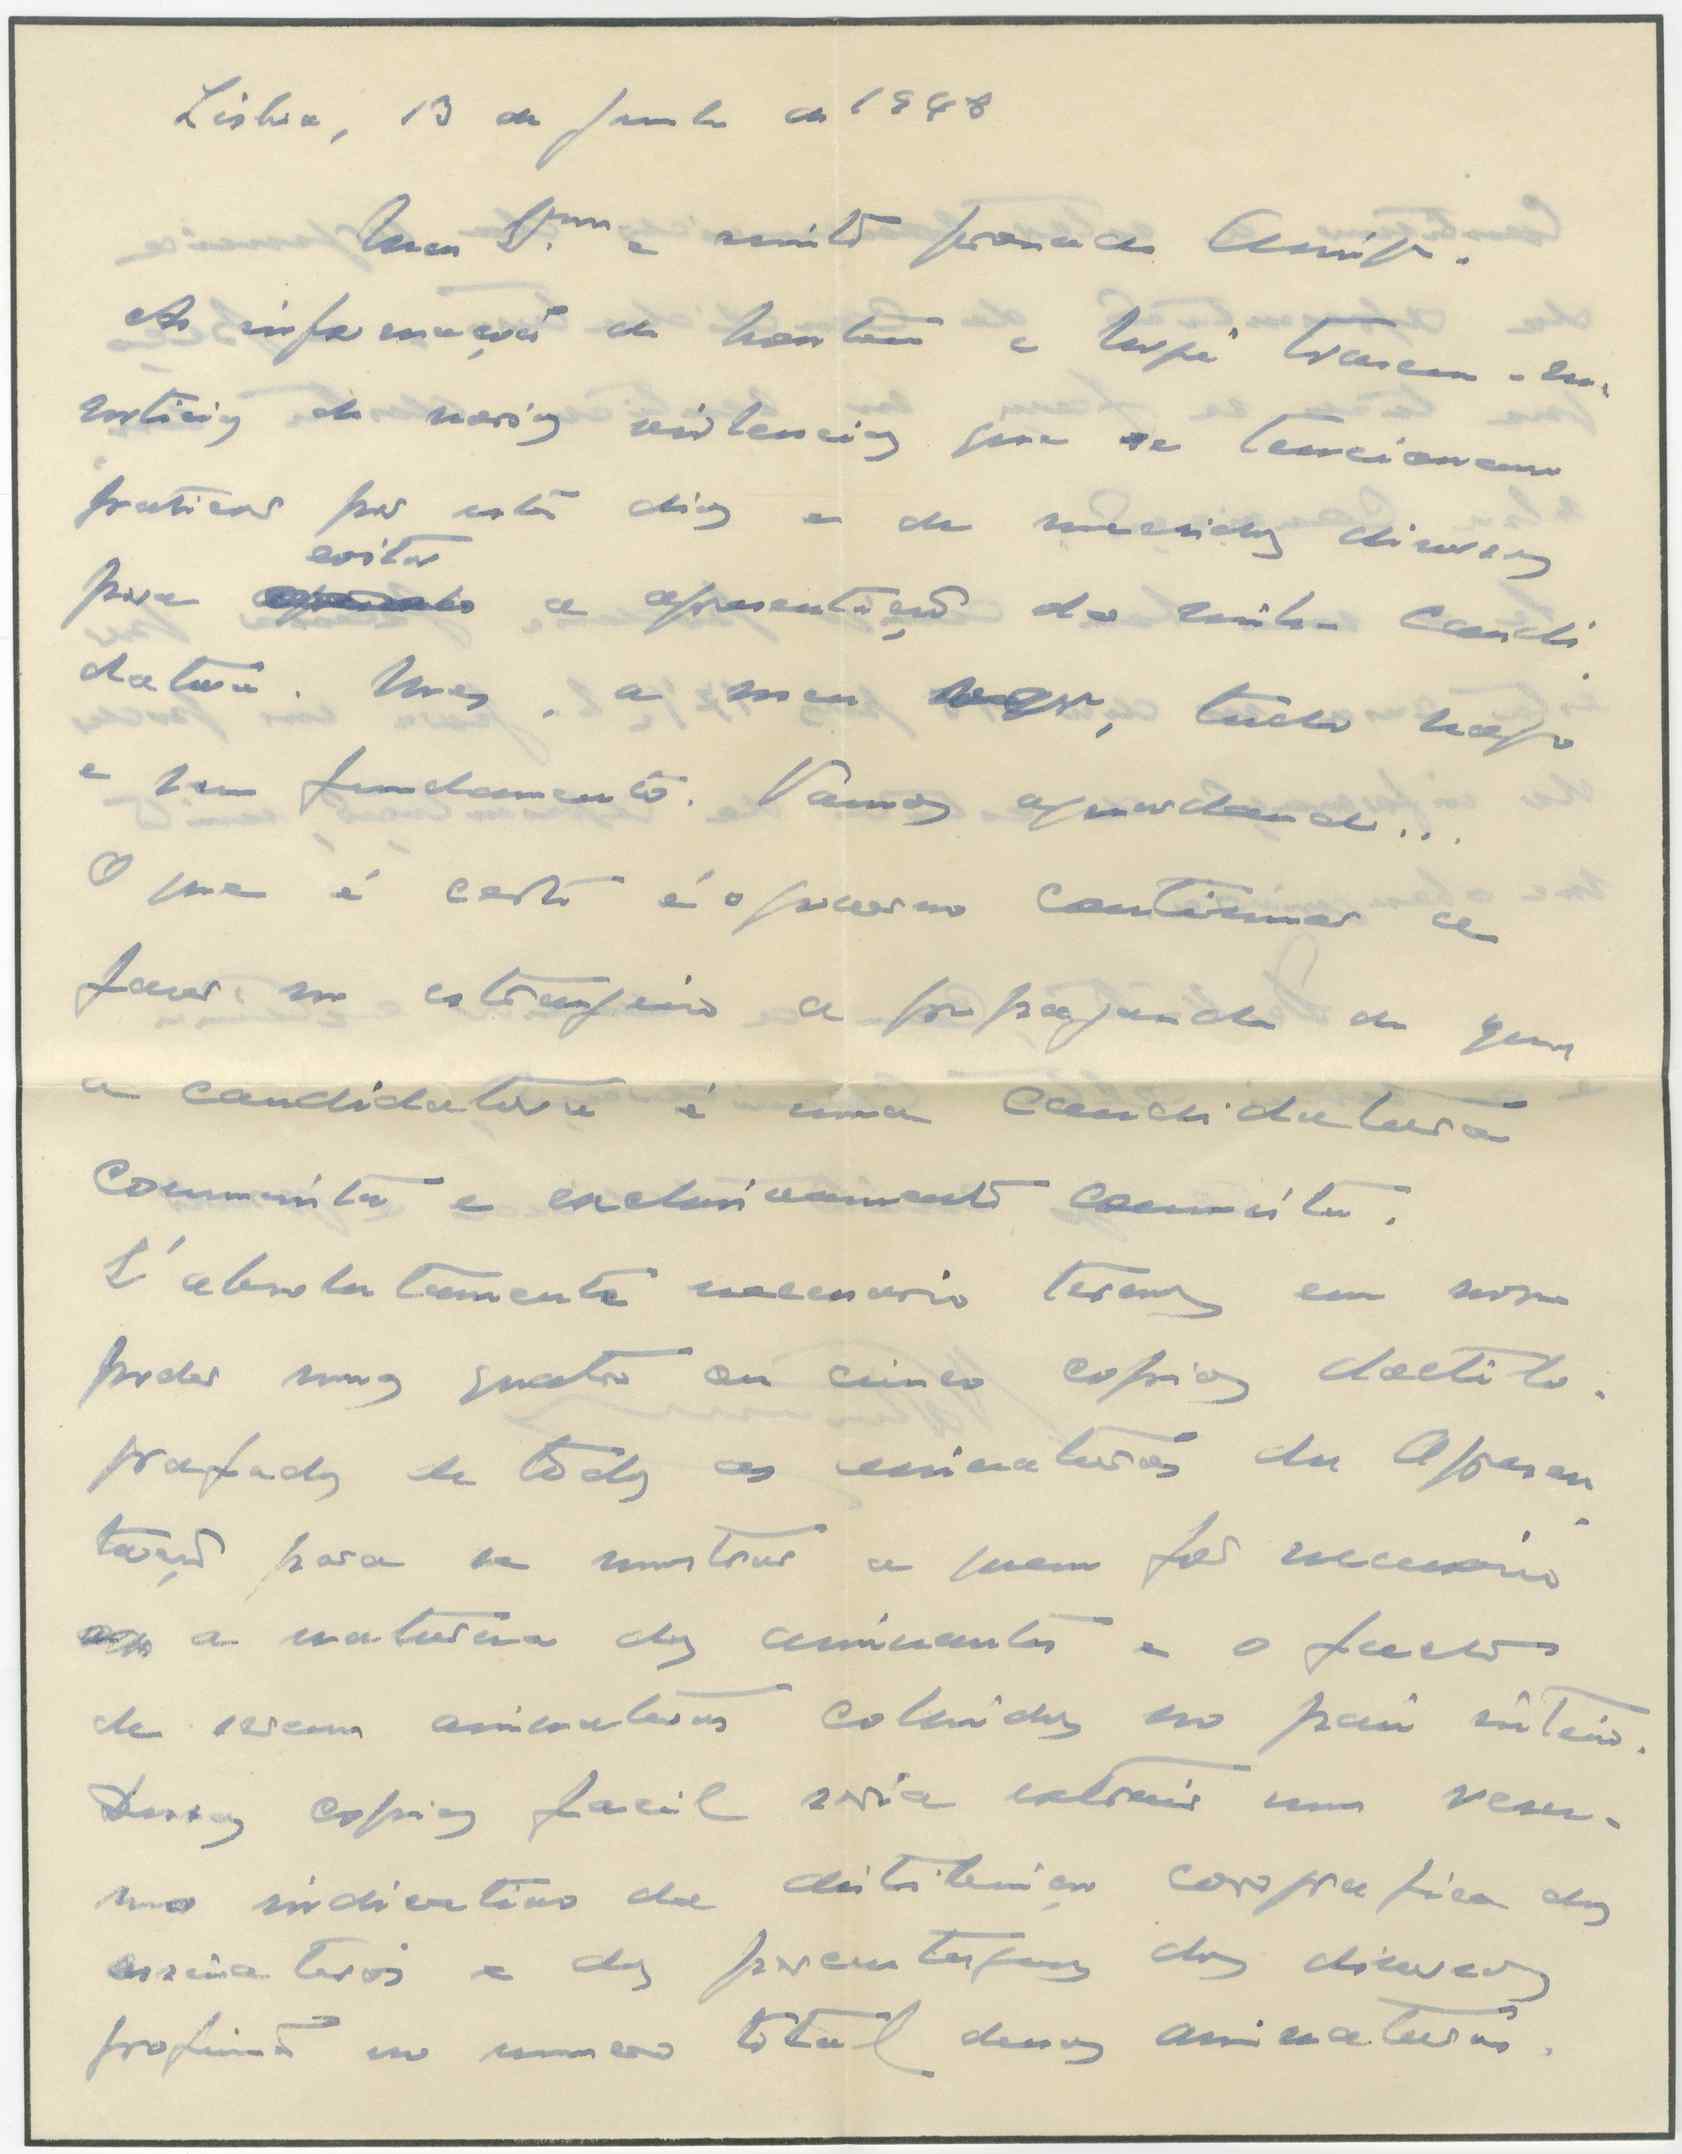 Lisboa, 13 de Junho de 1948
Meu Exmo e muito prezado Amigo.
As informações de hontem e hoje trazem-me
noticias de varias violencias que se tencionam
praticar por estes dias e de medidas diversas
para evitar a apresentação da minha candi-
datura. Mas, a meu ver, tudo vago
e sem fundamento. Vamos aguardando...
O que é certo é o governo continuar a
fazer no estrangeiro a propaganda de que
a candidatura é uma candidatura
comunista e exclusivamente comunista.
É absolutamente necessario termos em nosso
poder umas quatro ou cinco copias dactilo-
grafadas de todas as assinaturas da Apresen-
tação para se mostrar a quem fôr necessario
a natureza dos assinantes e o facto
de serem assinaturas colhidas no pais inteiro.
Dessas copias facil seria extrair um resu-
mo indicativo da distribuição corografica das
assinaturas e das percentagens das diversas
profissões no numero total dessas assinaturas.